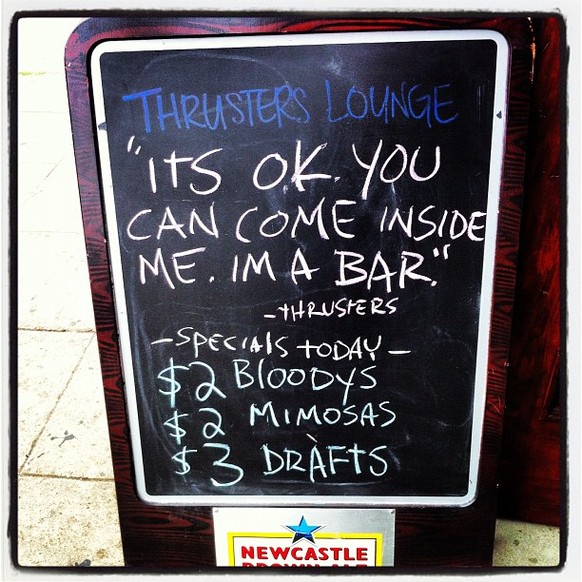 THRUSTERS LOUNGE
"ITS O.K. YOU
CAN COME INSIDE
ME. IM A BAR."
-THRUSTERS
- SPECIALS TODAY -
$2 BLOODYS
$2 MIMOSAS
$3 DRAFTS
NEWCASTLE
BROWN ALE